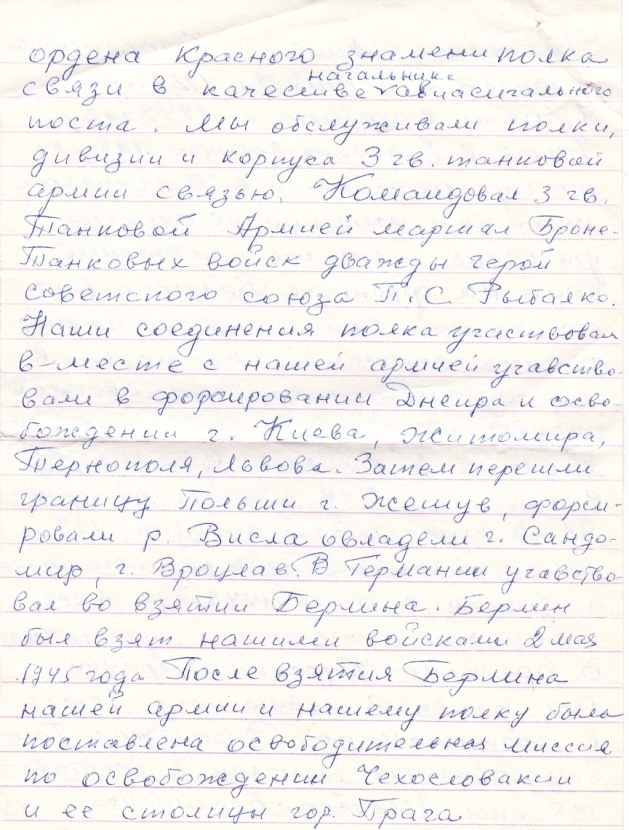 ордена Красного знамени полка
начальника
связи в качестве авиасигнального
поста. Мы обслуживали полки,
дивизии и корпуса 3 гв. танковой
армии связью. Командовал 3 гв.
Танковой Армией маршал Броне-
танковых войск дважды герой
советского союза П.С. Рыбалко.
Наши соединения полка участвовал
в-месте с нашей армией учавство-
вали в форсировании Днепра и осво-
бождении г. Киева, Житомира,
Тернополя, Львова. Затем перешли
границу Польши г. Жешув, форси-
ровали р. Висла овладели г. Сандо-
мир, г. Вроцлав. В Германии учавство-
вал во взятии Берлина. Берлин
был взят нашими войсками 2 мая
1945 года После взятия Берлина
нашей армии и нашему полку была
поставлена освободительная миссия
по освобождении Чехословакии
и ее столицы гор. Прага